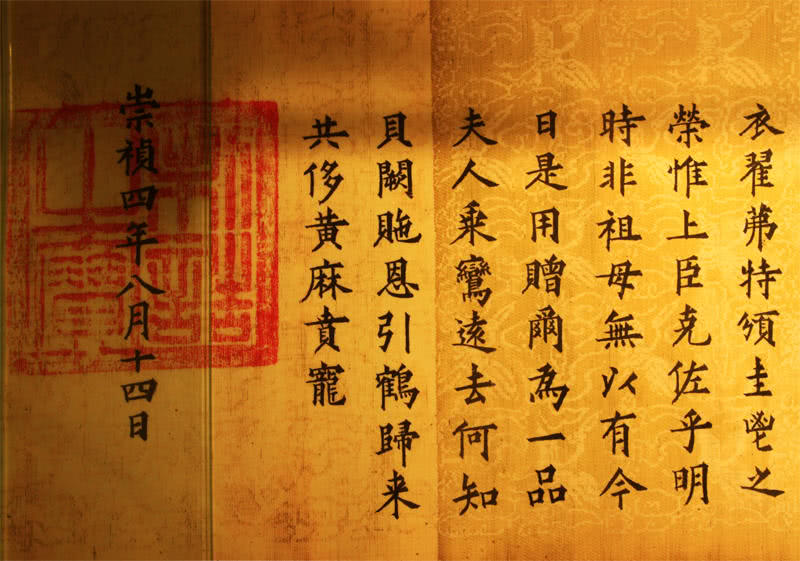 衣翟茀特頒圭鬯之
榮惟上臣克佐乎明
時非祖母無以有今
日是用贈爾為一品
夫人乘鸞遠去何知
貝闕貤恩引鶴歸来
共侈黃麻賁寵
崇禎四年八月十四日